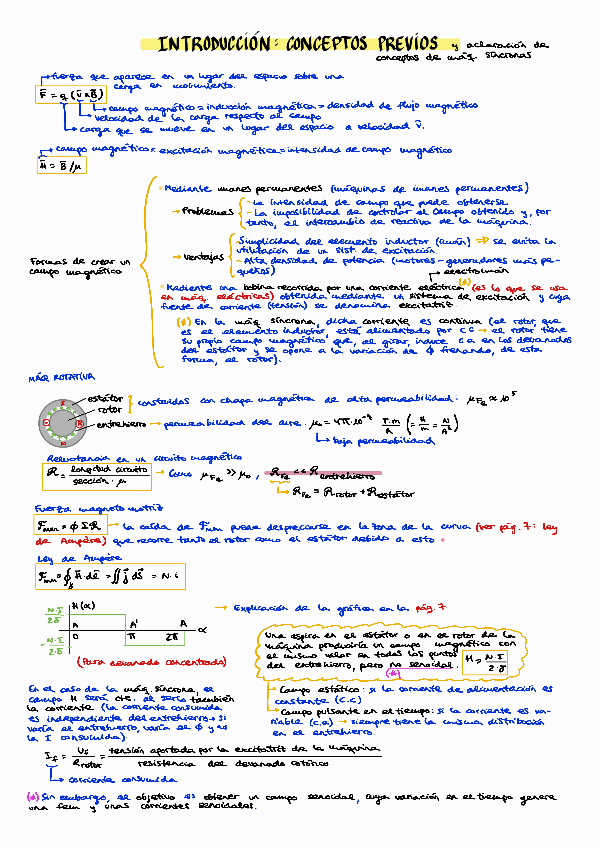 INTRODUCCIÓN: CONCEPTOS PREVIOS y aclaración de
conceptos de máq. síncronas
fuerza que aparece en un lugar del espacio sobre una
carga en movimiento.
F̄ = q (v̄ × B̄)
campo magnético = inducción magnética = densidad de flujo magnético
velocidad de la carga respecto al campo
carga que se mueve en un lugar del espacio a velocidad v̄.
campo magnético = excitación magnética = intensidad de campo magnético
H̄ = B̄/μ
Formas de crear un
campo magnético
• Mediante imanes permanentes (máquinas de imanes permanentes)
→ Problemas
- La intensidad de campo que puede obtenerse
- La imposibilidad de controlar el campo obtenido y, por
tanto, el intercambio de reactiva de la máquina.
→ Ventajas
Simplicidad del elemento inductor (imán) ⇒ se evita la
utilización de un sist. de excitación
- Alta densidad de potencia (motores-generadores más pe-
queños)
electroimán
• Mediante una bobina recorrida por una corriente eléctrica (es lo que se usa
en máq. eléctricas) obtenida mediante un sistema de excitación y cuya
fuente de corriente (tensión) se denomina excitatriz
(*) En la máq. síncrona, dicha corriente es continua (el rotor, que
es el elemento inductor, está alimentado por CC → el rotor tiene
su propio campo magnético que, al girar, induce c.a en los devanados
del estátor y se opone a la variación de ϕ frenando, de esta
forma, el rotor).
MÁQ ROTATIVA
estátor
rotor
construidos con chapa magnética de alta permeabilidad: μFe ∝ 10⁵
entrehierro → permeabilidad del aire. μ₀ = 4π·10⁻⁷ T.m/A (= H/m = N/A²)
baja permeabilidad
Reluctancia en un circuito magnético
R = longitud circuito / sección · μ → Como μFe >> μ₀, RFe << Rentrehierro
RFe = Rrotor + Restátor
Fuerza magneto motriz
Fmm = ϕ Σ R → la caída de Fmm puede despreciarse en la zona de la curva (ver pág. 7: ley
de Ampère) que recorre tanto el rotor como el estátor debido a esto •
Ley de Ampère
Fmm = ∮ H̄·dl̄ = ∬ J̄ dS̄ = N·i
H(α)
N·I/2δ
-N·I/2δ
A A' A α
0 π 2π
(Para devanado concentrado)
→ Explicación de la gráfica en la pág. 7
Una espira en el estátor o en el rotor de la
máquina produciría un campo magnético con
el mismo valor en todos los puntos
del entrehierro, pero no senoidal. H = N·I / 2·δ
(*)
Campo estático: si la corriente de alimentación es
constante (c.c)
Campo pulsante en el tiempo: si la corriente es va-
riable (c.a) → siempre tiene la misma distribución
en el entrehierro.
En el caso de la máq. síncrona, el
campo H será cte. al serlo también
la corriente (la corriente consumida
es independiente del entrehierro → si
varía el entrehierro, varía el ϕ y no
la I consumida)
If = Uf / Rrotor = tensión aportada por la excitatriz de la máquina / resistencia del devanado rotórico
corriente consumida
(*) Sin embargo, el objetivo es obtener un campo senoidal, cuya variación en el tiempo genere
una fem y unas corrientes senoidales.